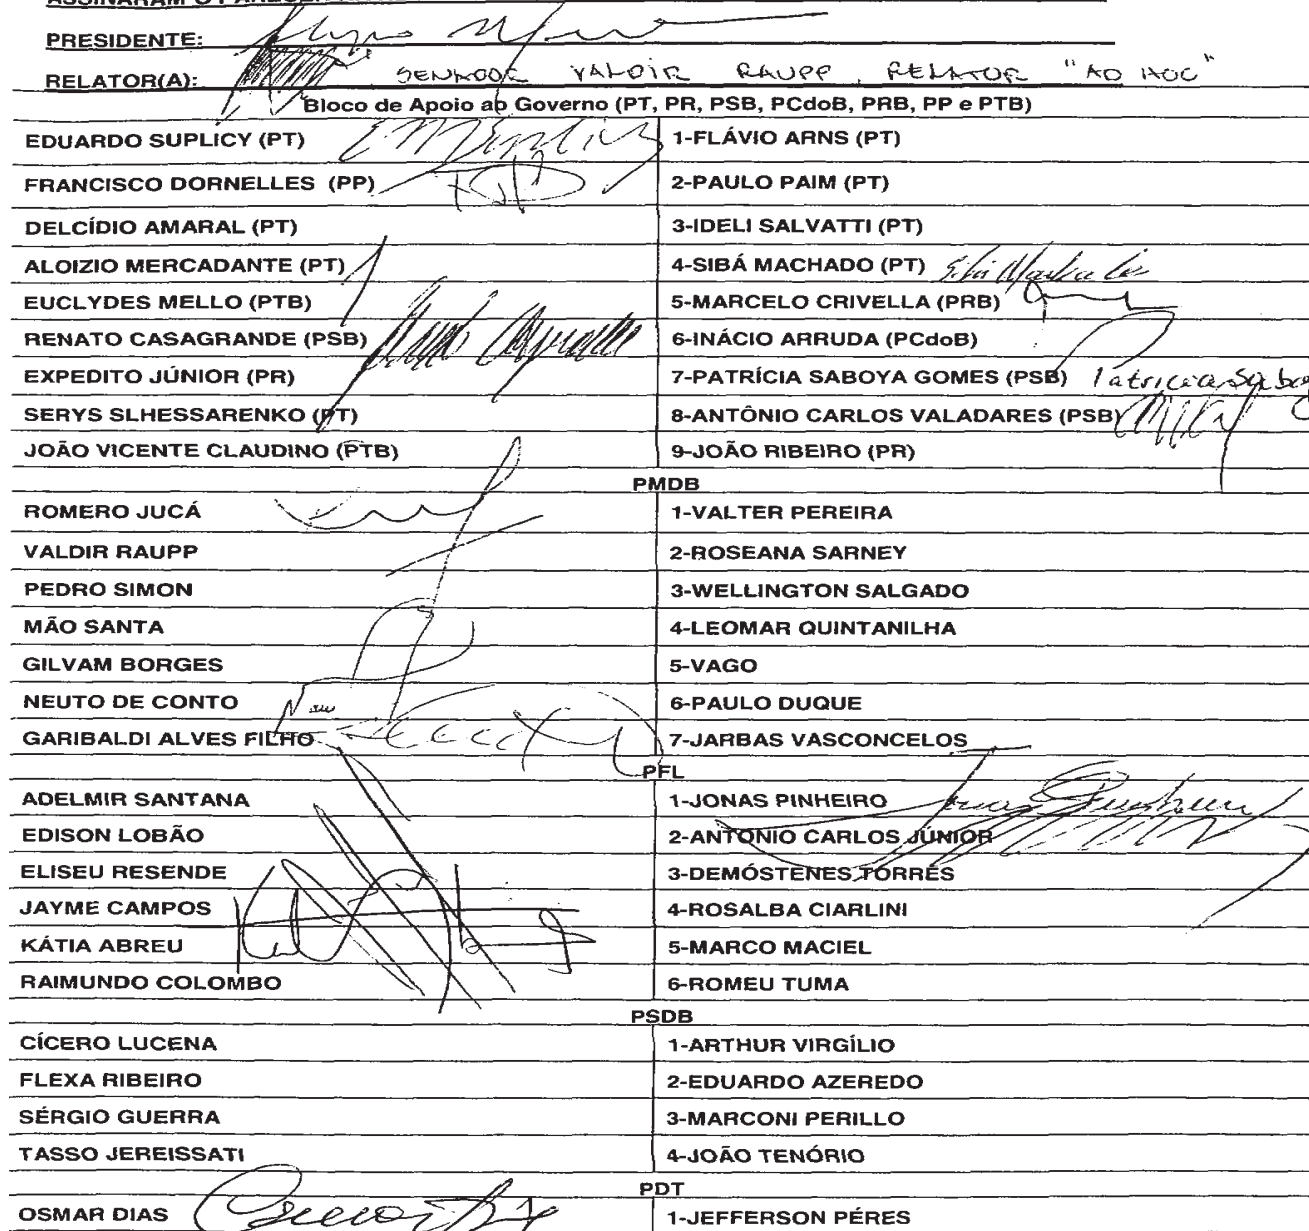 PRESIDENTE:
RELATOR(A): SENADOR VALDIR RAUPP, RELATOR "AD HOC"
Bloco de Apoio ao Governo (PT, PR, PSB, PCdoB, PRB, PP e PTB)
EDUARDO SUPLICY (PT) 1-FLÁVIO ARNS (PT)
FRANCISCO DORNELLES (PP) 2-PAULO PAIM (PT)
DELCÍDIO AMARAL (PT) 3-IDELI SALVATTI (PT)
ALOIZIO MERCADANTE (PT) 4-SIBÁ MACHADO (PT)
EUCLYDES MELLO (PTB) 5-MARCELO CRIVELLA (PRB)
RENATO CASAGRANDE (PSB) 6-INÁCIO ARRUDA (PCdoB)
EXPEDITO JÚNIOR (PR) 7-PATRÍCIA SABOYA GOMES (PSB) Patricia Saboy
SERYS SLHESSARENKO (PT) 8-ANTÔNIO CARLOS VALADARES (PSB)
JOÃO VICENTE CLAUDINO (PTB) 9-JOÃO RIBEIRO (PR)
PMDB
ROMERO JUCÁ 1-VALTER PEREIRA
VALDIR RAUPP 2-ROSEANA SARNEY
PEDRO SIMON 3-WELLINGTON SALGADO
MÃO SANTA 4-LEOMAR QUINTANILHA
GILVAM BORGES 5-VAGO
NEUTO DE CONTO 6-PAULO DUQUE
GARIBALDI ALVES FILHO 7-JARBAS VASCONCELOS
PFL
ADELMIR SANTANA 1-JONAS PINHEIRO
EDISON LOBÃO 2-ANTONIO CARLOS JÚNIOR
ELISEU RESENDE 3-DEMÓSTENES TORRES
JAYME CAMPOS 4-ROSALBA CIARLINI
KÁTIA ABREU 5-MARCO MACIEL
RAIMUNDO COLOMBO 6-ROMEU TUMA
PSDB
CÍCERO LUCENA 1-ARTHUR VIRGÍLIO
FLEXA RIBEIRO 2-EDUARDO AZEREDO
SÉRGIO GUERRA 3-MARCONI PERILLO
TASSO JEREISSATI 4-JOÃO TENÓRIO
PDT
OSMAR DIAS 1-JEFFERSON PÉRES